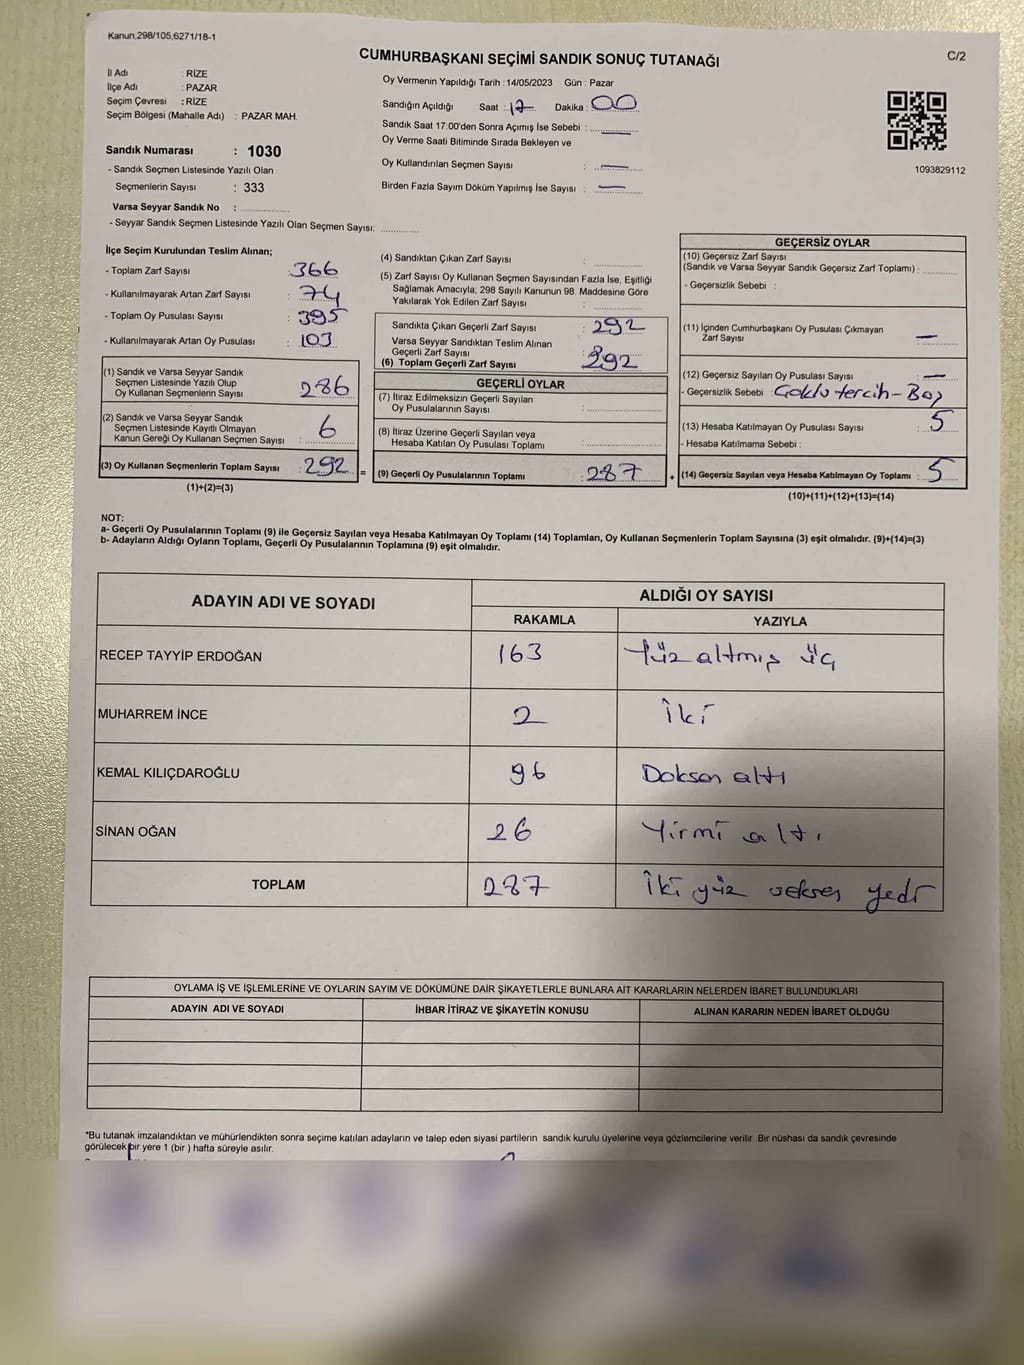 Kanun,298/105,6271/18-1
CUMHURBAŞKANI SEÇİMİ SANDIK SONUÇ TUTANAĞI
C/2
İl Adı : RİZE
İlçe Adı : PAZAR
Seçim Çevresi : RİZE
Seçim Bölgesi (Mahalle Adı) : PAZAR MAH.
Sandık Numarası : 1030
- Sandık Seçmen Listesinde Yazılı Olan
Seçmenlerin Sayısı : 333
Varsa Seyyar Sandık No :
- Seyyar Sandık Seçmen Listesinde Yazılı Olan Seçmen Sayısı:
Oy Vermenin Yapıldığı Tarih : 14/05/2023 Gün : Pazar
Sandığın Açıldığı Saat : 17 Dakika : 00
Sandık Saat 17:00'den Sonra Açımış İse Sebebi : —
Oy Verme Saati Bitiminde Sırada Bekleyen ve
Oy Kullandırılan Seçmen Sayısı : —
Birden Fazla Sayım Döküm Yapılmış İse Sayısı : —
1093829112
İlçe Seçim Kurulundan Teslim Alınan;
- Toplam Zarf Sayısı : 366
- Kullanılmayarak Artan Zarf Sayısı : 74
- Toplam Oy Pusulası Sayısı : 395
- Kullanılmayarak Artan Oy Pusulası : 103
(1) Sandık ve Varsa Seyyar Sandık
Seçmen Listesinde Yazılı Olup
Oy Kullanan Seçmenlerin Sayısı : 286
(2) Sandık ve Varsa Seyyar Sandık
Seçmen Listesinde Kayıtlı Olmayan
Kanun Gereği Oy Kullanan Seçmen Sayısı : 6
(3) Oy Kullanan Seçmenlerin Toplam Sayısı : 292 =
(1)+(2)=(3)
(4) Sandıktan Çıkan Zarf Sayısı :
(5) Zarf Sayısı Oy Kullanan Seçmen Sayısından Fazla İse, Eşitliği
Sağlamak Amacıyla; 298 Sayılı Kanunun 98. Maddesine Göre
Yakılarak Yok Edilen Zarf Sayısı :
Sandıkta Çıkan Geçerli Zarf Sayısı : 292
Varsa Seyyar Sandıktan Teslim Alınan
Geçerli Zarf Sayısı :
(6) Toplam Geçerli Zarf Sayısı : 292
GEÇERLİ OYLAR
(7) İtiraz Edilmeksizin Geçerli Sayılan
Oy Pusulalarının Sayısı :
(8) İtiraz Üzerine Geçerli Sayılan veya
Hesaba Katılan Oy Pusulası Toplamı :
(9) Geçerli Oy Pusulalarının Toplamı : 287 +
GEÇERSİZ OYLAR
(10) Geçersiz Zarf Sayısı
(Sandık ve Varsa Seyyar Sandık Geçersiz Zarf Toplamı) :
- Geçersizlik Sebebi :
(11) İçinden Cumhurbaşkanı Oy Pusulası Çıkmayan
Zarf Sayısı : —
(12) Geçersiz Sayılan Oy Pusulası Sayısı : —
- Geçersizlik Sebebi : Çoklu tercih - Boş
(13) Hesaba Katılmayan Oy Pusulası Sayısı : 5
- Hesaba Katılmama Sebebi :
(14) Geçersiz Sayılan veya Hesaba Katılmayan Oy Toplamı : 5
(10)+(11)+(12)+(13)=(14)
NOT:
a- Geçerli Oy Pusulalarının Toplamı (9) ile Geçersiz Sayılan veya Hesaba Katılmayan Oy Toplamı (14) Toplamları, Oy Kullanan Seçmenlerin Toplam Sayısına (3) eşit olmalıdır. (9)+(14)=(3)
b- Adayların Aldığı Oyların Toplamı, Geçerli Oy Pusulalarının Toplamına (9) eşit olmalıdır.
ADAYIN ADI VE SOYADI ALDIĞI OY SAYISI
RAKAMLA YAZIYLA
RECEP TAYYİP ERDOĞAN 163 Yüz altmış üç
MUHARREM İNCE 2 İki
KEMAL KILIÇDAROĞLU 96 Doksan altı
SİNAN OĞAN 26 Yirmi altı
TOPLAM 287 İki yüz seksen yedi
OYLAMA İŞ VE İŞLEMLERİNE VE OYLARIN SAYIM VE DÖKÜMÜNE DAİR ŞİKAYETLERLE BUNLARA AİT KARARLARIN NELERDEN İBARET BULUNDUKLARI
ADAYIN ADI VE SOYADI İHBAR İTİRAZ VE ŞİKAYETİN KONUSU ALINAN KARARIN NEDEN İBARET OLDUĞU
*Bu tutanak imzalandıktan ve mühürlendikten sonra seçime katılan adayların ve talep eden siyasi partilerin sandık kurulu üyelerine veya gözlemcilerine verilir .Bir nüshası da sandık çevresinde
görülecek bir yere 1 (bir ) hafta süreyle asılır.